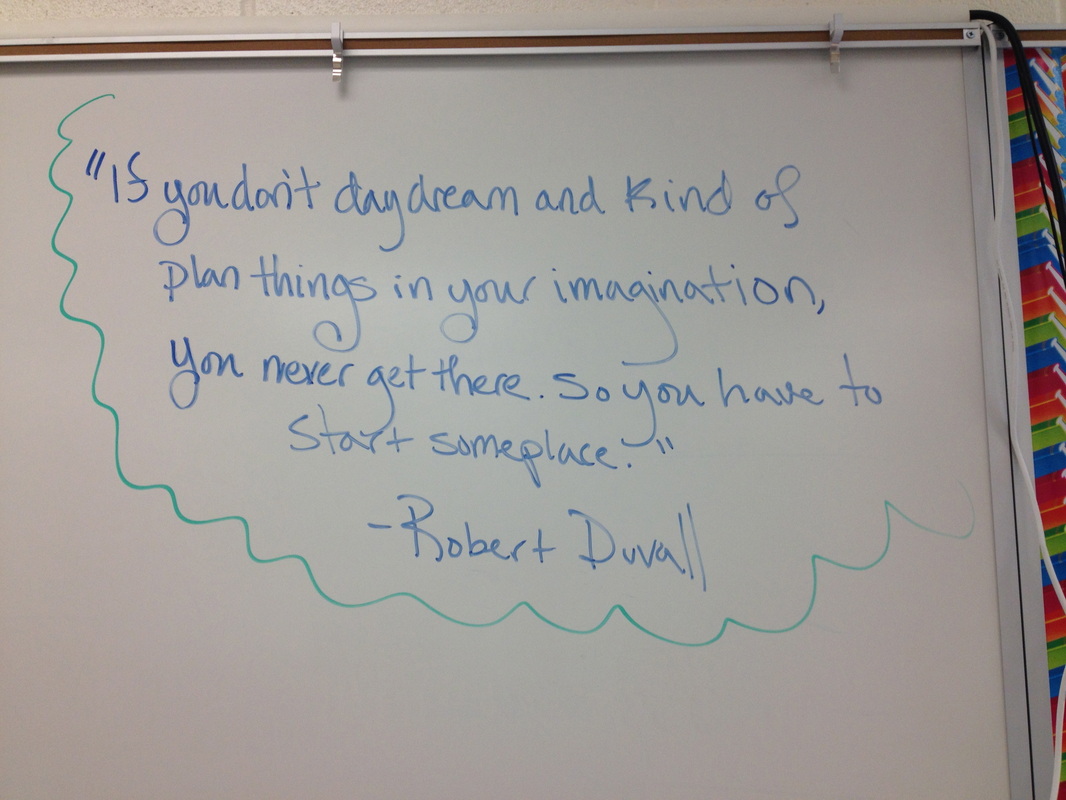 "If you don't daydream and kind of
plan things in your imagination,
you never get there. So you have to
start someplace."
-Robert Duvall